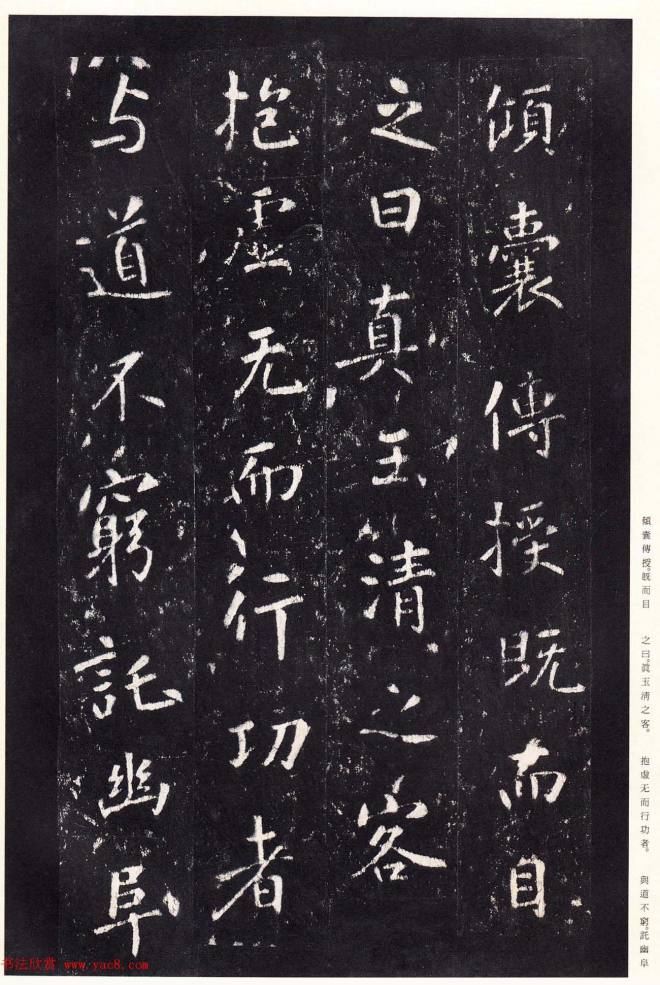 傾囊傳授既而目
之曰真玉清之客
抱虛无而行功者
与道不窮託幽阜
傾囊傳授。既而目 之曰。眞玉淸之客。 抱虛无而行功者。 與道不窮。託幽阜
书法欣赏 www.yac8.com